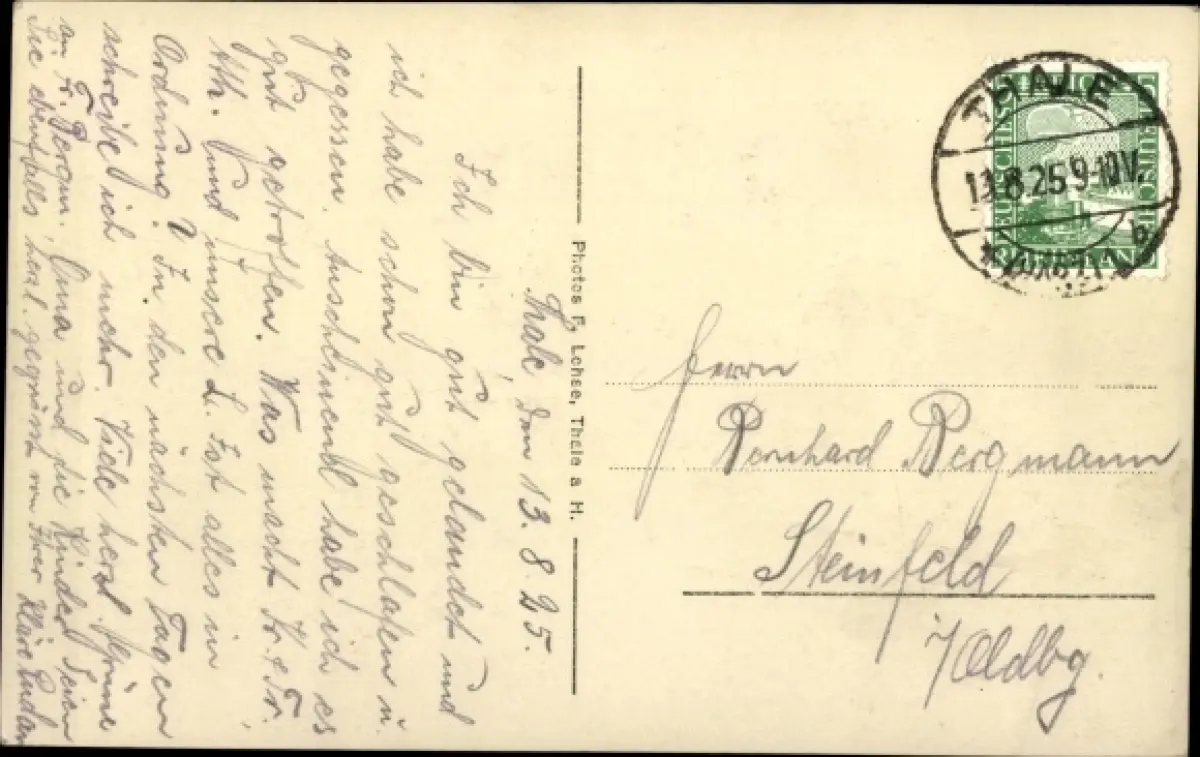 Thale, den 13. 8. 25.
Ich bin gut gelandet und
ich habe schon gut geschlafen u.
gegessen. Anscheinend habe ich es
gut getroffen. Was macht Fr.
und unsere L. Ist alles in
Ordnung? In den nächsten Tagen
schreibe ich mehr. Viele herzl. Grüsse
an Fr. Bergm. Oma und die Kinder Seien
Sie ebenfalls herzl. gegrüsst von Ihrer Kläre
Photos F. Lohse, Thale a. H.
THALE
13.8.25 9-10V.
b
DEUTSCHES REICH
Herrn
Bernhard Bergmann
Steinfeld
i/Oldbg.